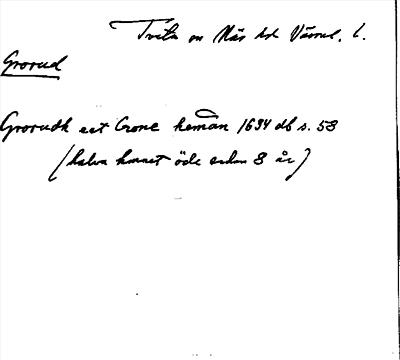 Tveta sn Näs hd Värml. l.
Grorud
Grorudh ett Crone heman 1694 db s. 58
(halva hemmet öde sedan 8 år)